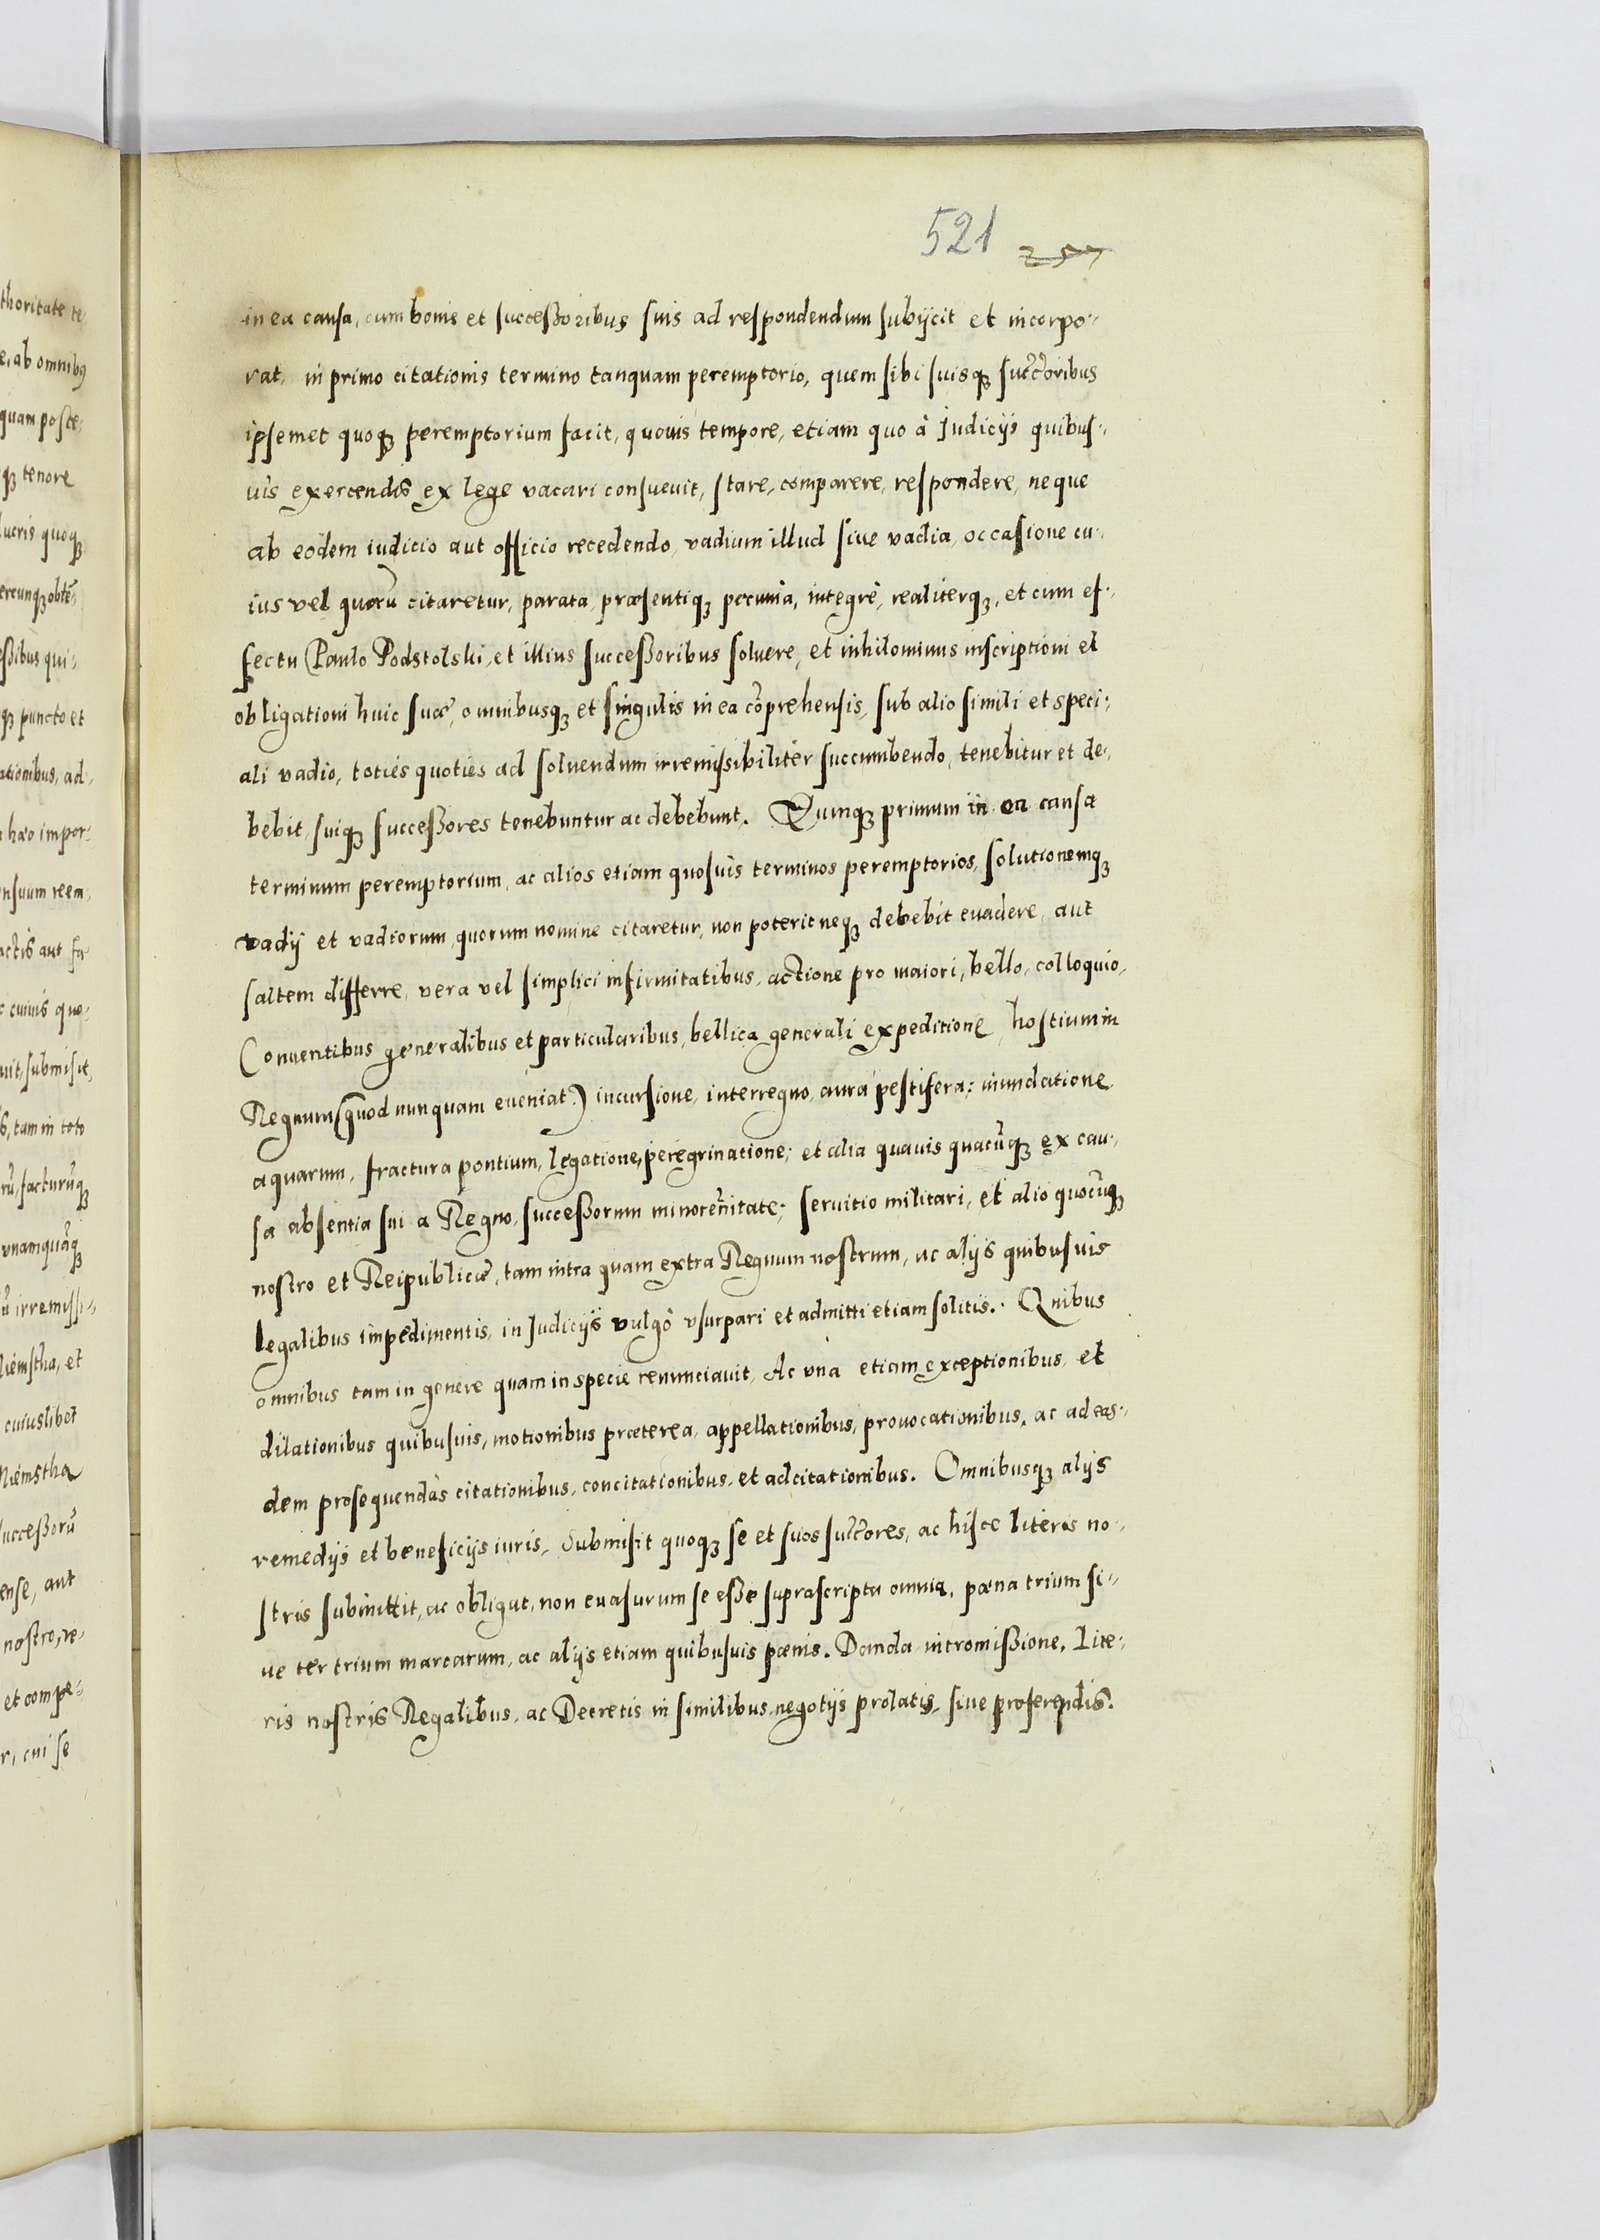 521 257
thoritate te,
e, ab omnibꝰ
quam poste,
qꝫ tenore
lucris quoqꝫ
ercunqꝫ obtē,
eßibus qui,
qꝫ puncto et
ationibus, ad,
hæo impor,
nsuum reem,
actis aut fa
c cuius quo,
uit, submisit,
s, tam in toto
rū, facturūqꝫ
vnamquāqꝫ
ū irremissi,
Niemstha, et
cuiuslibet
Niemstha
succeßorū
ense, aut
nostro, re,
et compe,
r, cui se
in ea causa, cum bonis et succeßoribus suis ad respondendum subijcit et incorpo,
rat, in primo citationis termino tanquam peremptorio, quem sibi suisqꝫ succ̄oribus
ipsemet quoqꝫ peremptorium facit, quouis tempore, etiam quo à Judicijs quibus,
uis exercendis ex lege vacari consueuit, stare, comparere, respondere, neque
ab eodem iudicio aut officio recedendo, vadium illud siue vadia, occasione cu,
ius vel quorū citaretur, parata, præsentiqꝫ pecunia, integrè, realiterqꝫ, et cum ef,
fectu Paulo Podstolski, et illius succeßoribus soluere, et inhilominus inscriptioni et
obligationi huic suæ, omnibusqꝫ et singulis in ea cōprehensis, sub alio simili et speci,
ali vadio, toties quoties ad soluendum irremissibilitèr succumbendo, tenebitur et de,
bebit, suiqꝫ succeßores tenebuntur ac debebunt. Eumqꝫ primum in ea causa
terminum peremptorium, ac alios etiam quosuis terminos peremptorios, solutionemqꝫ
vadij et vadiorum, quorum nomine citaretur, non poterit neqꝫ debebit euadere, aut
saltem differre, vera vel simplici infirmitatibus, actione pro maiori, bello, colloquio,
Conuentibus generalibus et particularibus, bellica generali expeditione, hostium in
Regnum (quod nunquam eueniat) incursione, interregno, aura pestifera, inundatione
aquarum, fractura pontium, legatione, peregrinatione; et alia quauis quacūqꝫ ex cau,
sa absentia sui a Regno, succeßorum minorennitate; seruitio militari, et alio quocūqꝫ
nostro et Reipublicæ, tam intra quam extra Regnum nostrum, ac alijs quibusuis
legalibus impedimentis, in Judicijs vulgò vsurpari et admitti etiam solitis. Quibus
omnibus tam in genere quam in specie renunciauit, Ac vnà etiam exceptionibus, et
dilationibus quibusuis, motionibus præterea, appellationibus, prouocationibus, ac ad eas,
dem prosequendas citationibus, concitationibus, et adcitationibus. Omnibusqꝫ alijs
remedijs et beneficijs iuris, Submisit quoqꝫ se et suos succ̄ores, ac hisce literis no,
stris submittit, ac obligat, non euasurum se eße suprascripta omnia, pœna trium si,
ue ter trium marcarum, ac alijs etiam quibusuis pœnis. Danda intromißione. Lite,
ris nostris Regalibus, ac Decretis in similibus negotijs prolatis, siue proferendis.